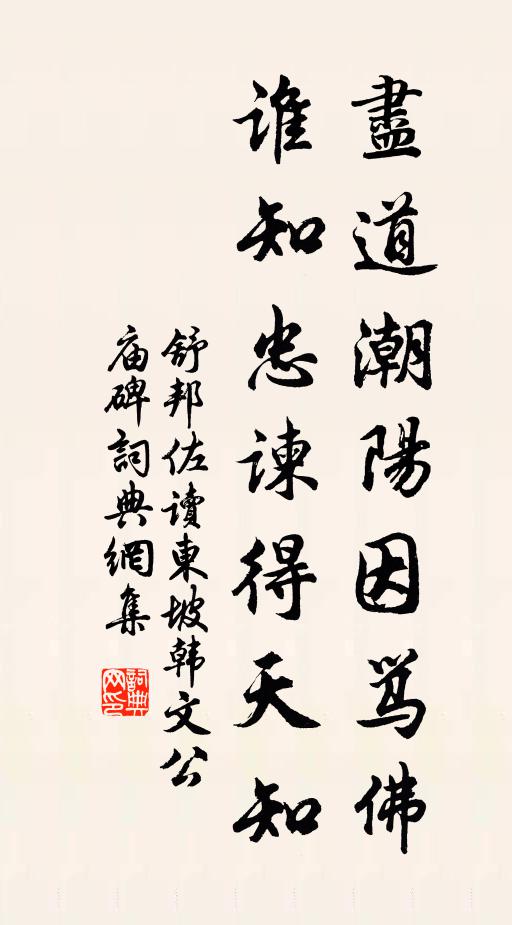 盡道潮陽因骂佛
谁知忠谏得天知
舒邦佐讀東坡韩文公
庙碑詞典網集
詞典网印